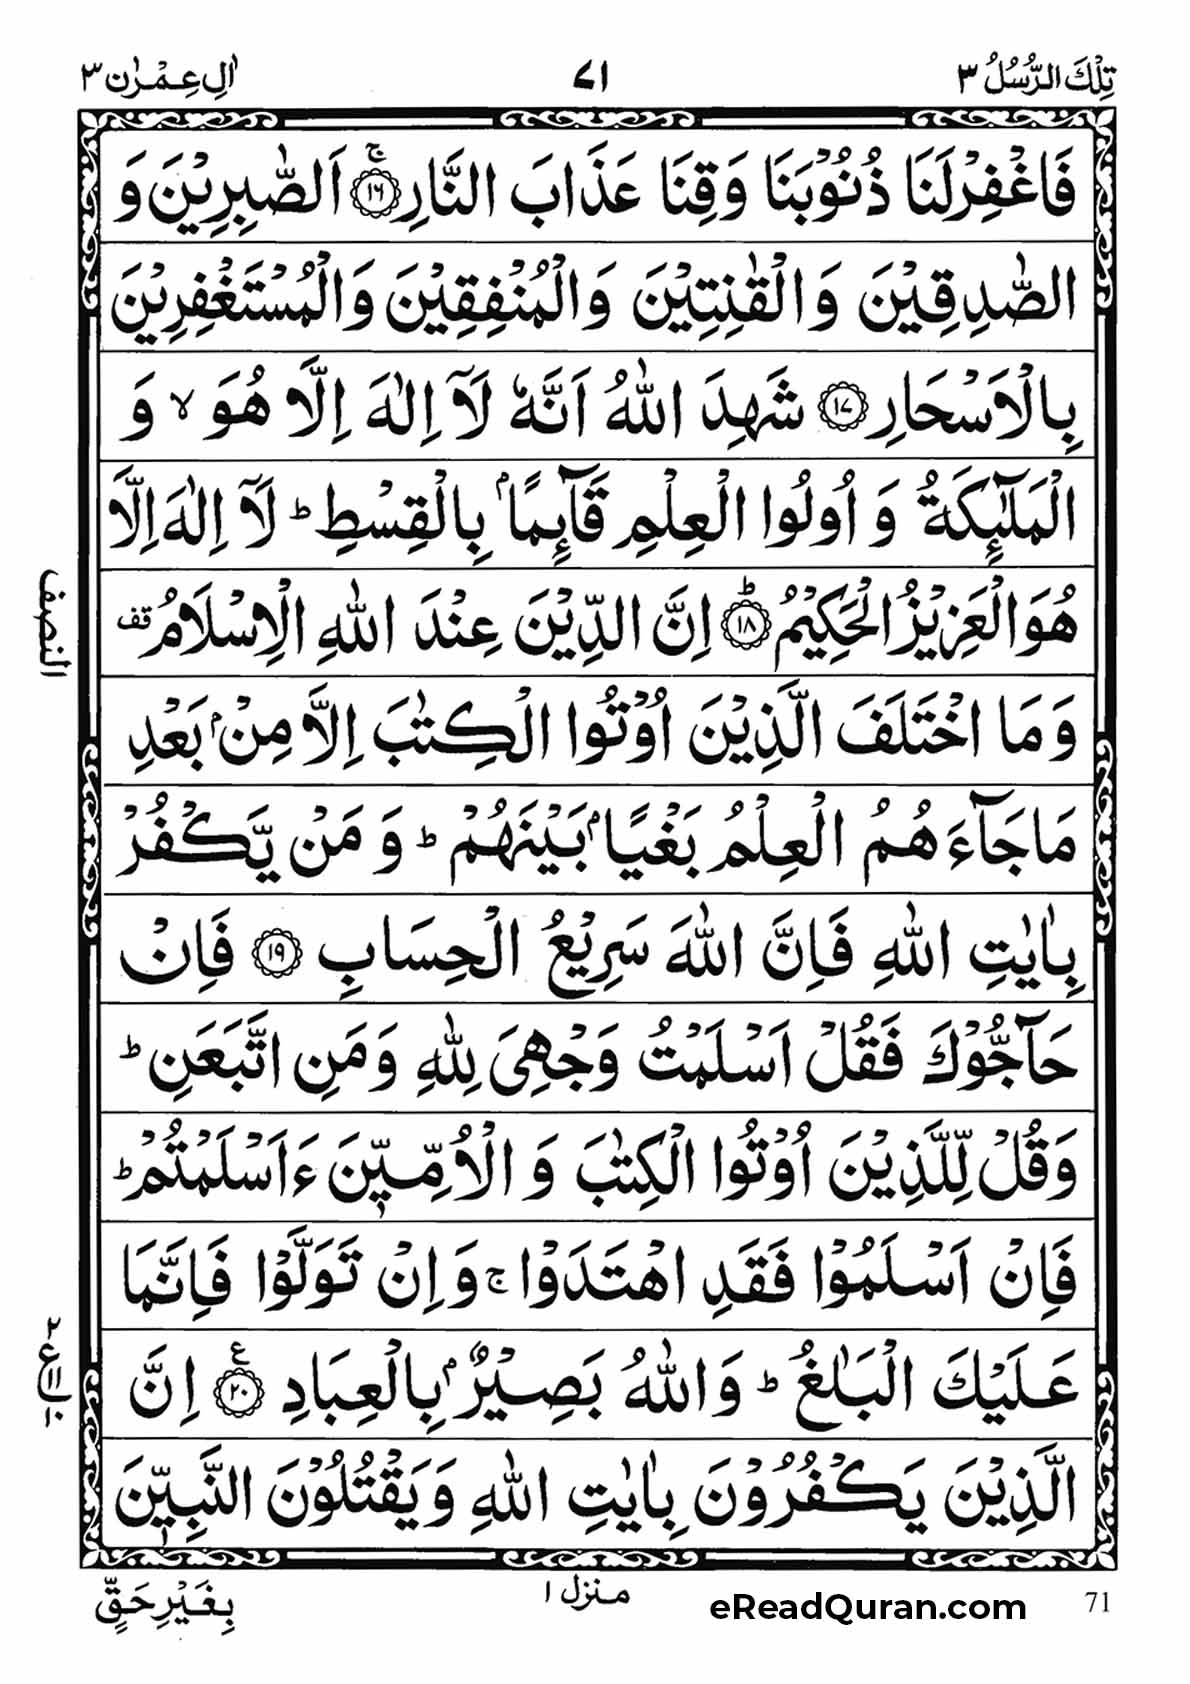 تِلْكَ الرُّسُلُ ٣
٧١
اٰلِ عِمْرٰن ٣
فَاغْفِرْلَنَا ذُنُوْبَنَا وَقِنَا عَذَابَ النَّارِ ۚ‏﴿۱۶﴾ اَلصّٰبِرِيْنَ وَ
الصّٰدِقِيْنَ وَالْقٰنِتِيْنَ وَالْمُنْفِقِيْنَ وَالْمُسْتَغْفِرِيْنَ
بِالْاَسْحَارِ ﴿۱۷﴾ شَهِدَ اللّٰهُ اَنَّهٗ لَاۤ اِلٰهَ اِلَّا هُوَ ۙ وَ
الْمَلٰٓئِكَةُ وَ اُولُوا الْعِلْمِ قَآئِمًاۢ بِالْقِسْطِ ؕ لَاۤ اِلٰهَ اِلَّا
هُوَالْعَزِيْزُ الْحَكِيْمُ ؕ ﴿۱۸﴾ اِنَّ الدِّيْنَ عِنْدَ اللّٰهِ الْاِسْلَامُ قف
وَمَا اخْتَلَفَ الَّذِيْنَ اُوْتُوا الْكِتٰبَ اِلَّا مِنْۢ بَعْدِ
مَاجَآءَهُمُ الْعِلْمُ بَغْيًاۢ بَيْنَهُمْ ؕ وَ مَنْ يَّكْفُرْ
بِاٰيٰتِ اللّٰهِ فَاِنَّ اللّٰهَ سَرِيْعُ الْحِسَابِ ﴿۱۹﴾ فَاِنْ
حَآجُّوْكَ فَقُلْ اَسْلَمْتُ وَجْهِىَ لِلّٰهِ وَمَنِ اتَّبَعَنِ ؕ
وَقُلْ لِّلَّذِيْنَ اُوْتُوا الْكِتٰبَ وَالْاُمِّيّٖنَ ءَاَسْلَمْتُمْ ؕ
فَاِنْ اَسْلَمُوْا فَقَدِ اهْتَدَوْا ۚ وَاِنْ تَوَلَّوْا فَاِنَّمَا
عَلَيْكَ الْبَلٰغُ ؕ وَاللّٰهُ بَصِيْرٌۢ بِالْعِبَادِ ﴿۲۰﴾ ع اِنَّ
الَّذِيْنَ يَكْفُرُوْنَ بِاٰيٰتِ اللّٰهِ وَيَقْتُلُوْنَ النَّبِيّٖنَ
النصف
ع
بِغَيْرِحَقٍّ
منزل ١
eReadQuran.com
71